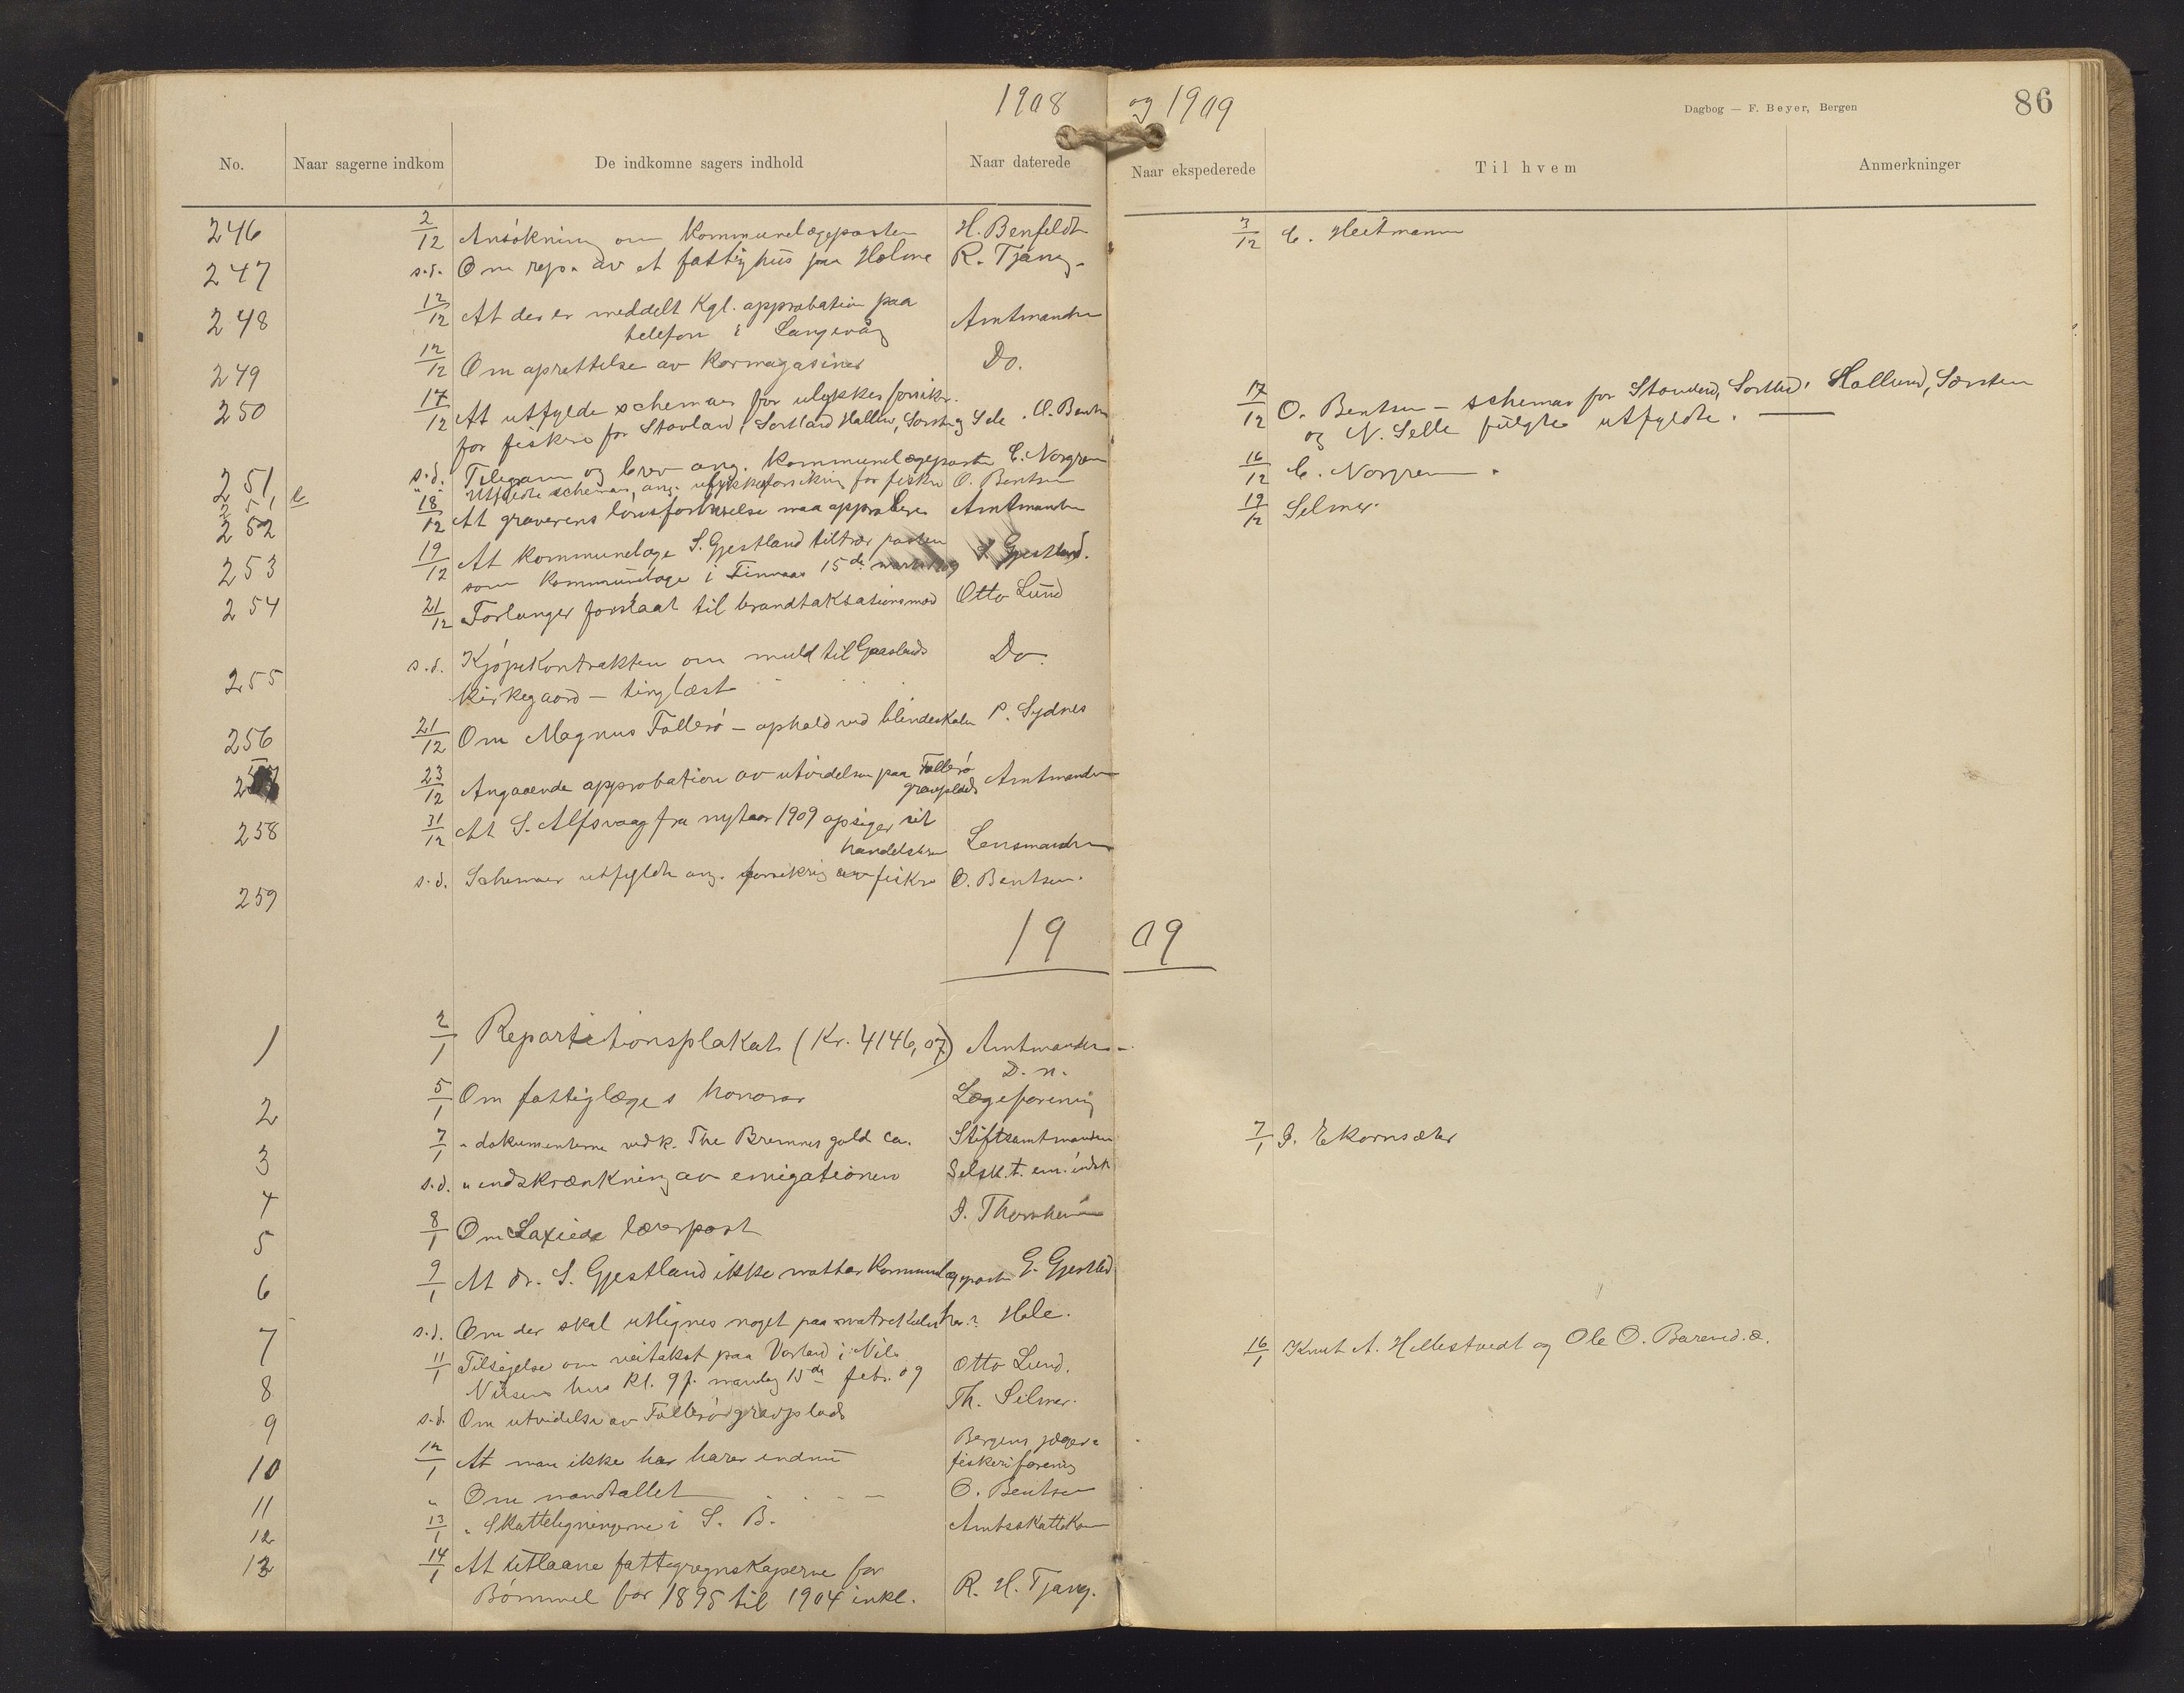 1908 og 1909
Dagbog — F. Beyer, Bergen
86
No. Naar sagerne indkom De indkomne sagers indhold Naar daterede Naar ekspederede Til hvem Anmerkninger
246 2/12 Ansökning om kommunelægeposten H. Benfeldt 3/12 C. Heitmann
247 s.d. Om rep. av et fattighus paa Holme R. Tjang.
248 12/12 At der er meddelt Kgl. approbation paa
telefon i Langevåg Amtmanden
249 12/12 Om oprettelse av kornmagasiner Do.
250 17/12 At utfylde schemaer for ulykkesforsikr. 17/12 O. Bentsen – schemar for Stavland, Sortland, Hallund, Sørsten
for fiskere for Stavland, Sortland Hallun, Sørst og Sele. O. Bents og N. Selle fulgte utfyldte.
251 s.d. Telegram og brev ang. kommunelægeposten C. Norgren 16/12 C. Norgren.
251 b " " Utfyldte schemar, ang. ulykkesforsikring for fiskere O. Bentsen
252 18/12 At graverens lønsforhøielse maa approberes Amtmanden 19/12 Selmer.
253 19/12 At kommunelæge S. Gjestland tiltrær posten
som kommunelæge i Finnaas 15de marts 1909 S. Gjestland.
254 21/12 Forlanger forslaat til brandtakstationsmød Otto Lund
255 s.d. Kjøpekontrakten om muld til Gaaslands Do.
kirkegaard – tinglæst
256 21/12 Om Magnus Folleró – ophold ved blindeskolen P. Sydnes
257 23/12 Angaaende approbation av utvidelsen paa Folleró
gravplads Amtmanden
258 31/12 At S. Alfsvaag fra nytaar 1909 opsiger sit
handelsbrev Lensmanden
259 s.d. Schemaer utfyldte ang. forsikring av fiskere O. Bentsen.
19 09
1 2/1 Repartitionsplakat (Kr. 4146,07) Amtmanden
2 5/1 Om fattiglæges honorar D. n.
Lægeforening
3 7/1 " dokumenterne vedk. The Bremnes gold Co. Stiftsamtmanden 7/1 J. Ekornsæter
4 s.d. " indskrænkning av emigationen Selsk. t. em. indsk
5 8/1 Om Laxieds lærerpost
6 9/1 At Dr. S. Gjestland ikke mottar kommunelægeposten G. Gjestland
7 s.d. Om der skal utlignes noget paa matrikulen her? Hole.
8 11/1 Tilsigelse om veitakst paa Vorland i Nils Otto Lund. 16/1 Knut A. Hellestvedt og Ole O. Barend.æ.
Nilsens hus kl. 9 f. mandag 15de febr. 09
9 s.d. Om utvidelse av Folleró gravplads Th. Selmer.
10 12/1 At man ikke har harer endnu Bergens jæger-
fiskeriforening
11 " Om mandtallet O. Bentsen
12 13/1 " Skatteligningerne i S. B. Amtsskattekom
13 14/1 At utlaane fattigregnskaperne for
Bömmel for 1895 til 1904 inkl. R. H. Tjang.